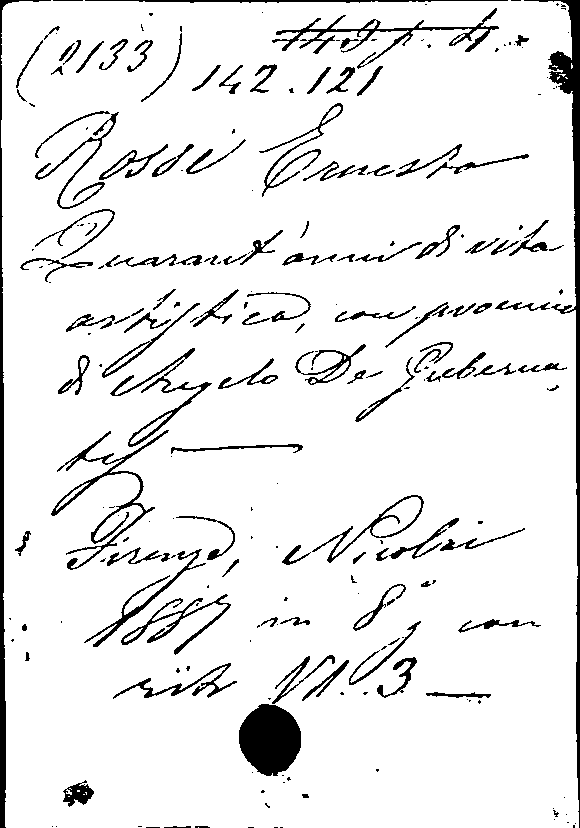 (2133) 149. p. 4.
142.121
Rossi Ernesto
Quarant'anni di vita
artistica, con proemio
di Angelo De Guberna-
tis
Firenze, Nicolai
1887 in 8° con
ritr